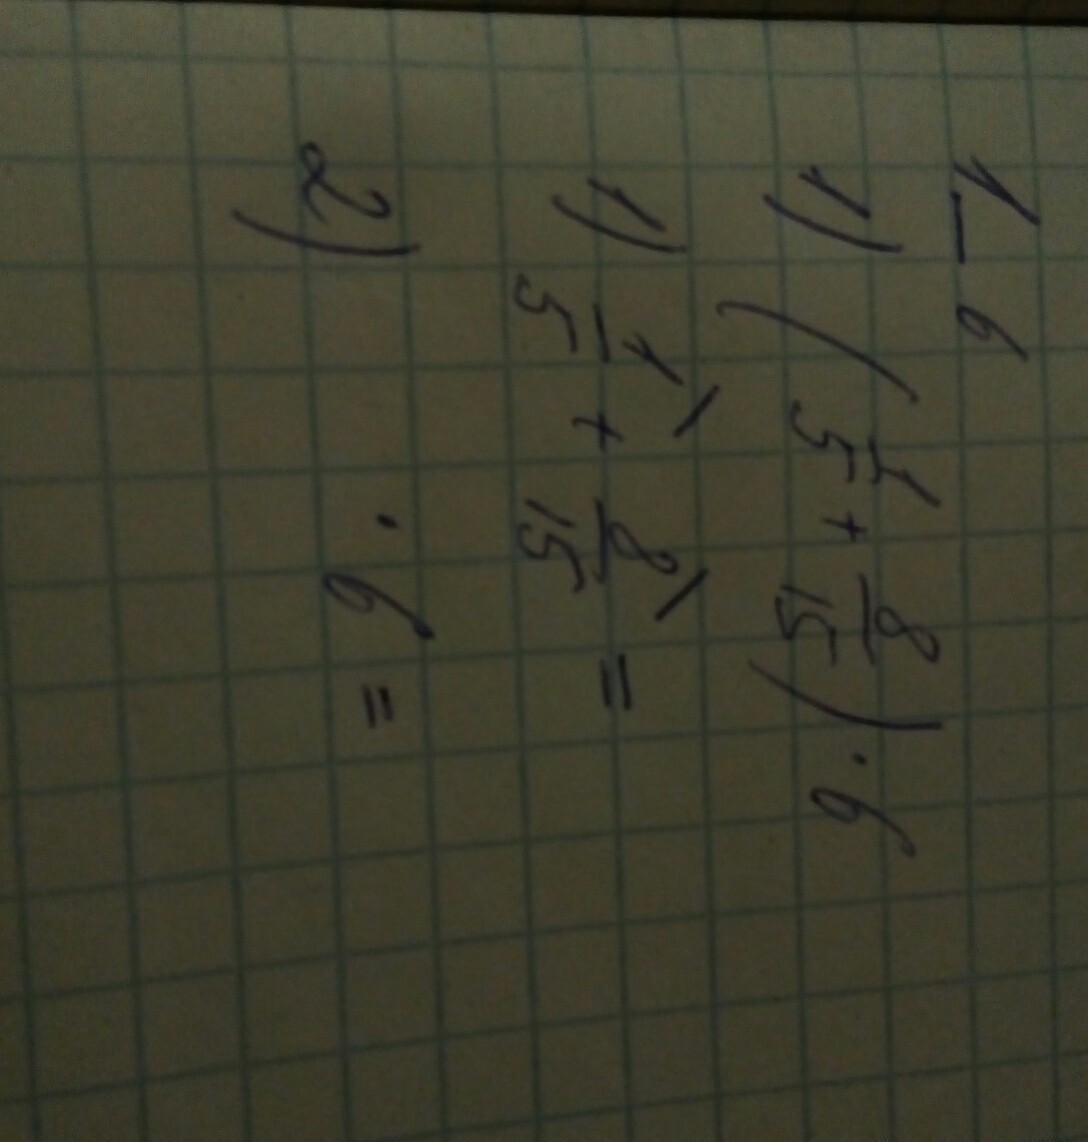 1-6
1) (1/5 + 8/15) · 6
1) 1/5 + 8/15 =
2) · 6 =